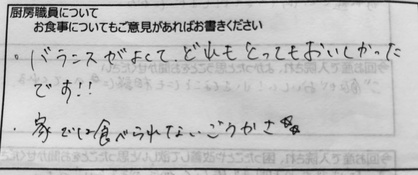 厨房職員について
お食事についてもご意見があればお書きください
・バランスがよくて、どれもとってもおいしかった
です!!
・家では食べられないごうかさ☆☆